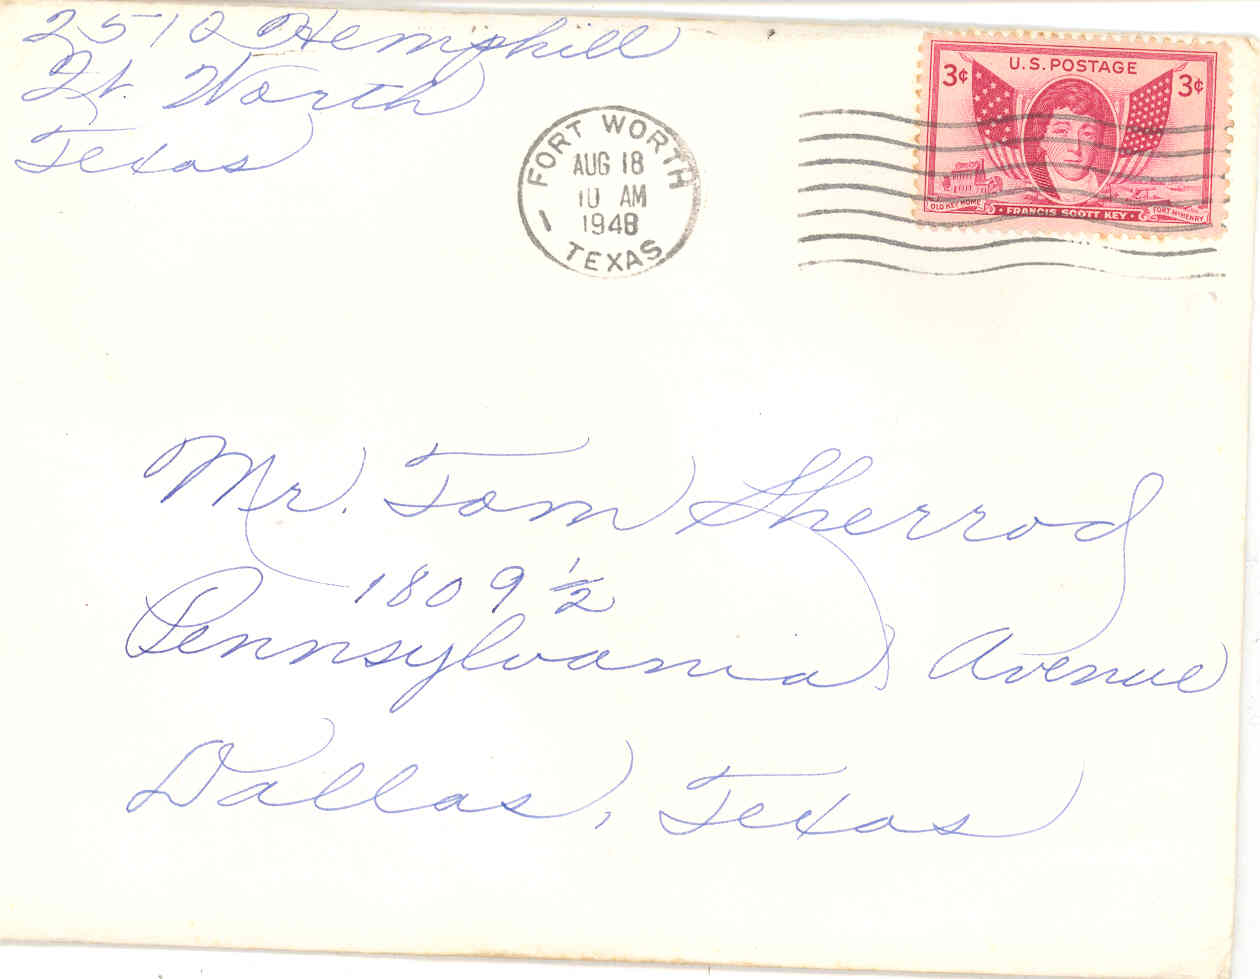 2510 Hemphill
Ft. Worth
Texas
FORT WORTH
AUG 18
10 AM
1948
TEXAS
U.S. POSTAGE
3¢ 3¢
OLD KEY HOME
FRANCIS SCOTT KEY
FORT McHENRY
Mr. Tom Sherrod
1809 1/2
Pennsylvania Avenue
Dallas, Texas